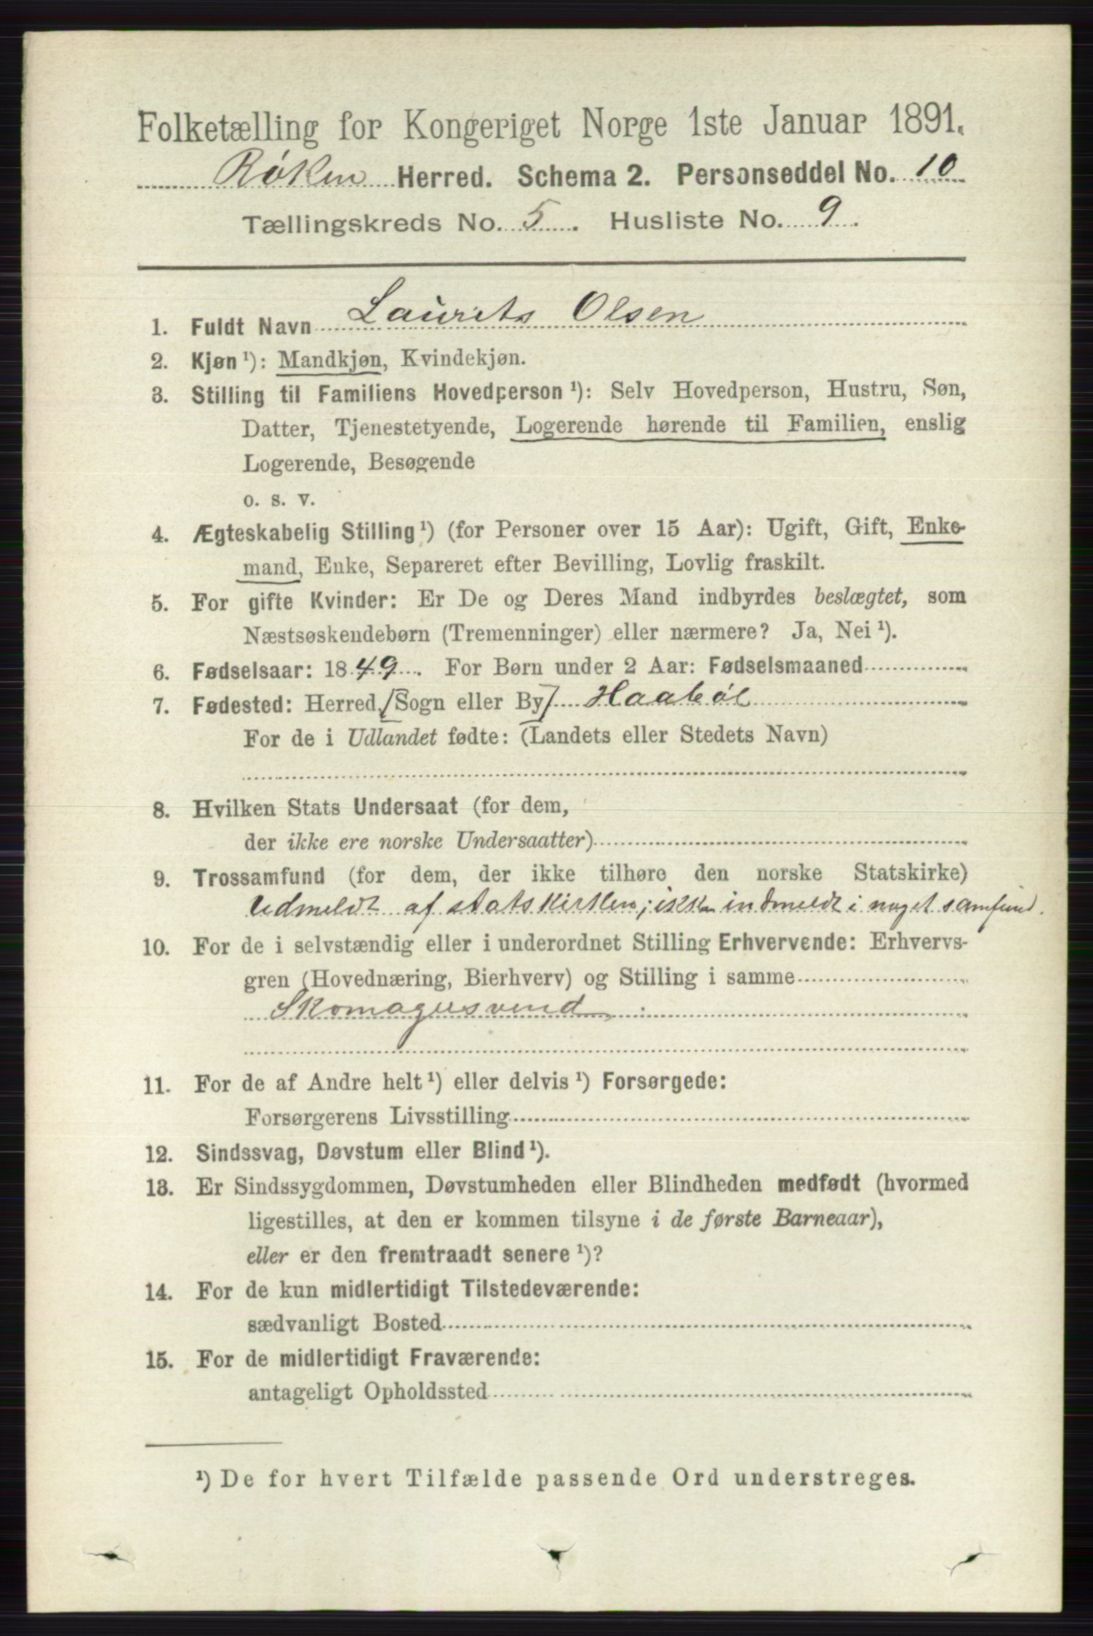 Folketælling for Kongeriget Norge 1ste Januar 1891.
Røken Herred. Schema 2. Personseddel No. 10
Tællingskreds No. 5. Husliste No. 9.
1. Fuldt Navn Laurits Olsen
2. Kjøn ¹): Mandkjøn, Kvindekjøn.
3. Stilling til Familiens Hovedperson ¹): Selv Hovedperson, Hustru, Søn,
Datter, Tjenestetyende, Logerende hørende til Familien, enslig
Logerende, Besøgende
o. s. v.
4. Ægteskabelig Stilling ¹) (for Personer over 15 Aar): Ugift, Gift, Enke-
mand, Enke, Separeret efter Bevilling, Lovlig fraskilt.
5. For gifte Kvinder: Er De og Deres Mand indbyrdes beslægtet, som
Næstsøskendebørn (Tremenninger) eller nærmere? Ja, Nei ¹).
6. Fødselsaar: 1849. For Børn under 2 Aar: Fødselsmaaned
7. Fødested: Herred [Sogn eller By] Haabøl
For de i Udlandet fødte: (Landets eller Stedets Navn)
8. Hvilken Stats Undersaat (for dem,
der ikke ere norske Undersaatter)
9. Trossamfund (for dem, der ikke tilhøre den norske Statskirke)
Udmeldt af statskirken; ikke indmeldt i noget samfund.
10. For de i selvstændig eller i underordnet Stilling Erhvervende: Erhvervs-
gren (Hovednæring, Bierhverv) og Stilling i samme
Skomagersvend
11. For de af Andre helt ¹) eller delvis ¹) Forsørgede:
Forsørgerens Livsstilling
12. Sindssvag, Døvstum eller Blind ¹).
13. Er Sindssygdommen, Døvstumheden eller Blindheden medfødt (hvormed
ligestilles, at den er kommen tilsyne i de første Barneaar),
eller er den fremtraadt senere ¹)?
14. For de kun midlertidigt Tilstedeværende:
sædvanligt Bosted
15. For de midlertidigt Fraværende:
antageligt Opholdssted
¹) De for hvert Tilfælde passende Ord understreges.